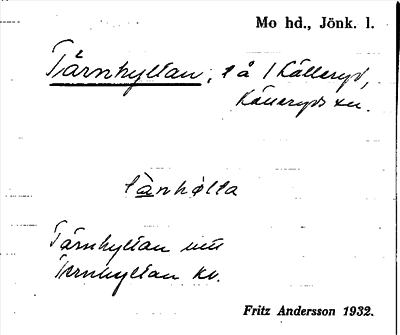 Mo hd., Jönk. l.
Tärnhyltan, t å 1 Kålleryd,
Källeryds sn.
tànhølta
Tärnhyltan
Ternhyltan kv.
Fritz Andersson 1932.